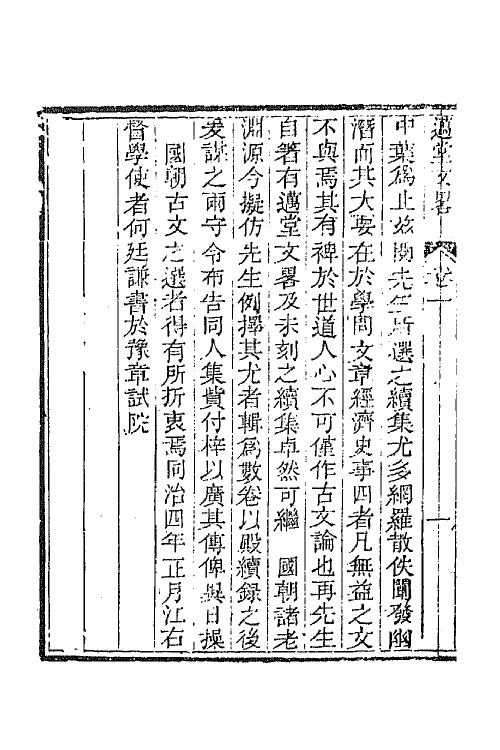 邁堂文畧 序 一
中葉爲止茲閱先生所選之續集尤多網羅散佚闡發幽
潛而其大要在於學問文章經濟史事四者凡無益之文
不與焉其有裨於世道人心不可僅作古文論也再先生
自著有邁堂文畧及未刻之續集卓然可繼 國朝諸老
淵源今擬仿先生例擇其尤者輯爲數卷以殿續錄之後
爰謀之兩守令布告同人集貲付梓以廣其傳俾異日操
國朝古文之選者得有所折衷焉同治四年正月江右
督學使者何廷謙書於豫章試院